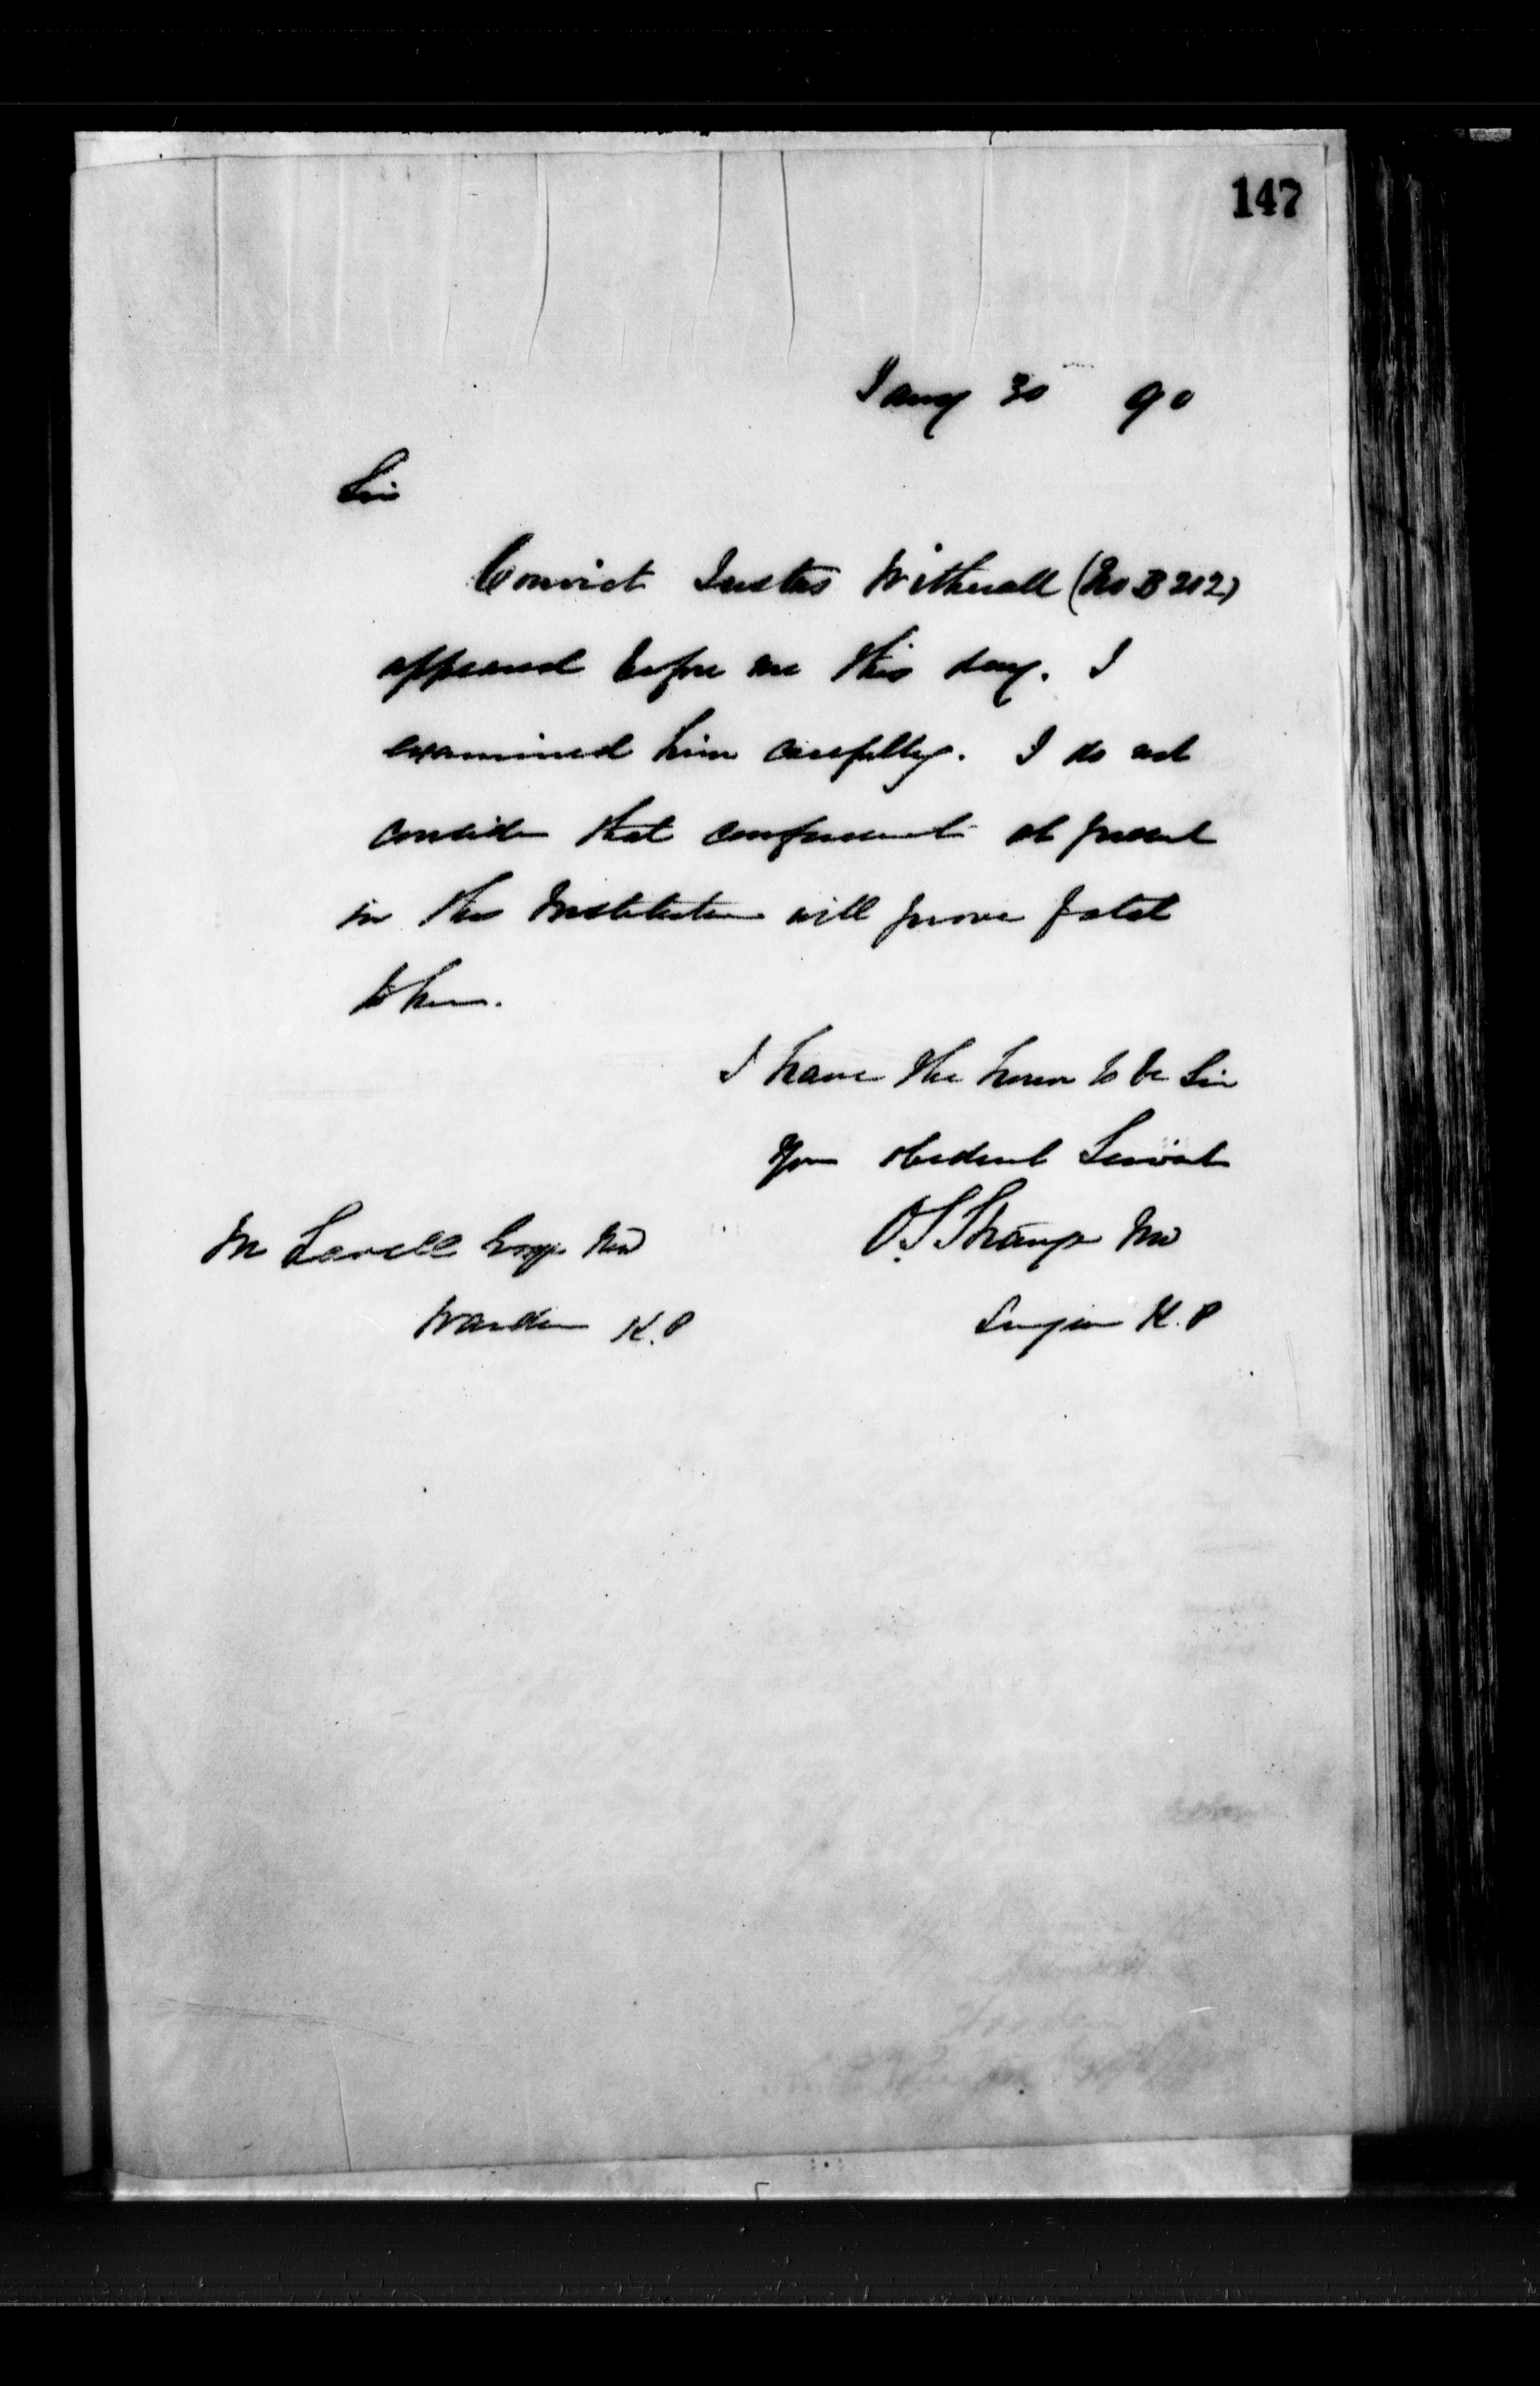 147
Jany 30 90
Sir
Convict Justus Witherall (No B 202)
appeared before me this day. I
examined him carefully. I do not
consider that confinement at present
in this Institution will prove fatal
to him.
I have the honor to be Sir
Your obedient Servant
O. S. Strange MD
Surgeon K.P
M Lavell Esqr MD
Warden K.P